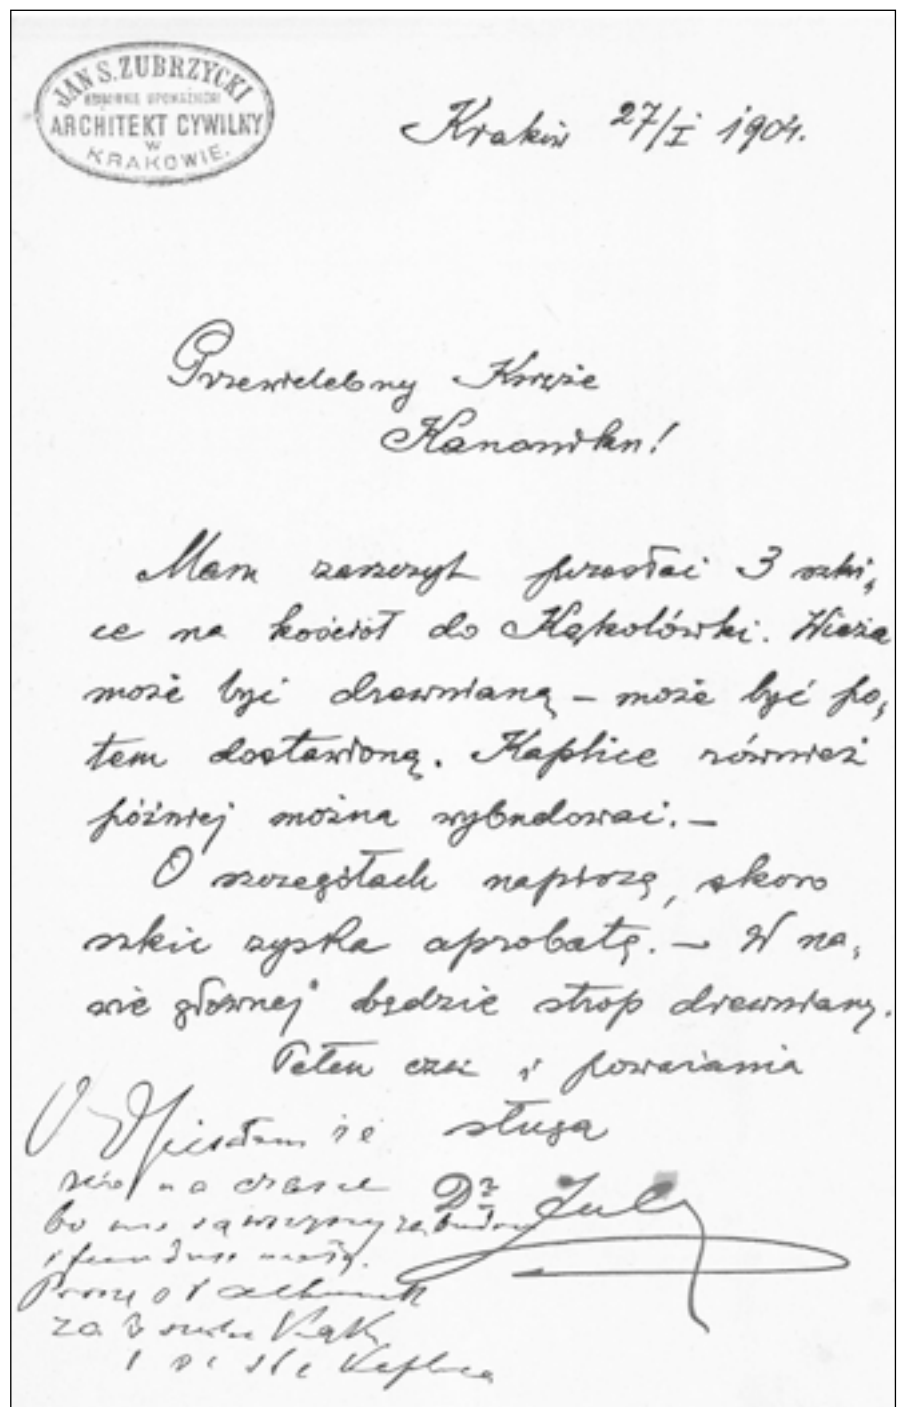 JAN S. ZUBRZYCKI
ARCHITEKT CYWILNY
W
KRAKOWIE.
Kraków 27/I 1904.
Przewielebny Księże
Kanoniku!
Mam zaszczyt przesłać 3 szki,
ce na kościół do Kąkolówki. Wieża
może być drewnianą – może być po,
tem dostawioną. Kaplice również
później można wybudować. –
O szczegółach napiszę, skoro
szkic zyska aprobatę. – W na,
wie głównej będzie strop drewniany.
Pełen czci i poważania
sługa
Dr
na czasie
bo
Proszę o rachunek
za 3 Kąk